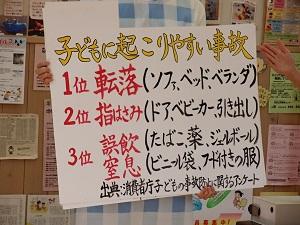 子どもに起こりやすい事故
1位 転落(ソファ、ベッド、ベランダ)
2位 指はさみ(ドア、ベビーカー、引き出し)
3位 誤飲(たばこ、薬、ジェルボール)
窒息(ビニール袋、フード付きの服)
出典:消費者庁子どもの事故防止に関するアンケート